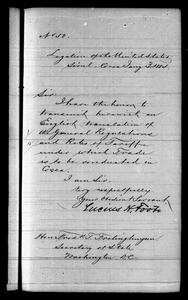 No 50.
Legation of the United States
Seoul. Corea Jany 3. 1885
Sir
I have the honor to
transmit herewith an
English translation of
the General Regulations
and Rates of Tariff
under which Trade
is to be conducted in
Corea.
I am Sir
Very respectfully
Your obedient Servant
Lucius H. Foote
Hon. Fred'k T. Frelinghuysen
Secretary of State
Washington D.C.